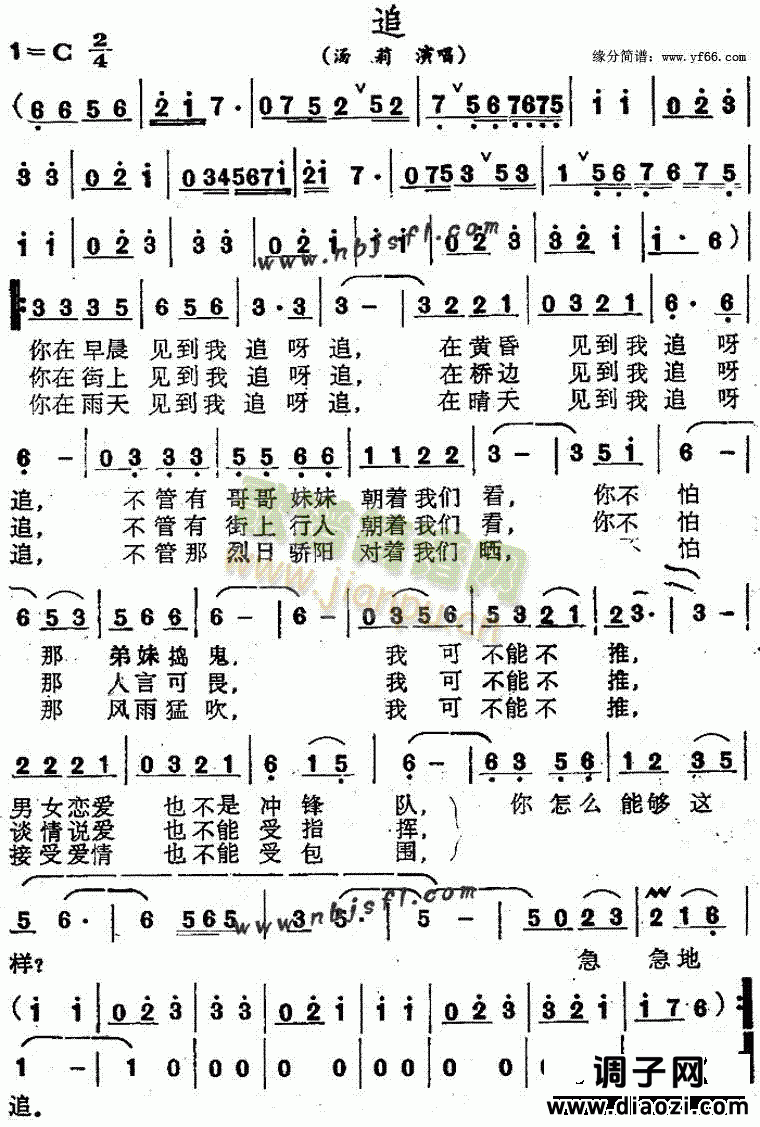 追
1=C 2/4
(汤 莉 演唱)
缘分简谱：www.yf66.com
(6 6 5 6 | 2 i 7 · | 0 7 5 2 ∨ 5 2 | 7 ∨ 5 6 7 6 7 5 | i i | 0 2 3 |
3 3 | 0 2 i | 0 3 4 5 6 7 i | 2 i 7 · | 0 7 5 3 ∨ 5 3 | 1 ∨ 5 6 7 6 7 5 |
i i | 0 2 3 | 3 3 | 0 2 i | i i | 0 2 3 | 3 2 i | i · 6 )
www.nbjsfl.com
3 3 3 5 | 6 5 6 | 3 · 3 | 3 － | 3 2 2 1 | 0 3 2 1 | 6 · 6
你在早晨 见到我 追 呀 追， 在黄昏 见到我 追 呀
你在街上 见到我 追 呀 追， 在桥边 见到我 追 呀
你在雨天 见到我 追 呀 追， 在晴天 见到我 追 呀
6 － | 0 3 3 3 | 5 5 6 6 | 1 1 2 2 | 3 － | 3 5 i | 6 －
追， 不管有 哥哥妹妹 朝着我们 看， 你不 怕
追， 不管有 街上行人 朝着我们 看， 你不 怕
追， 不管那 烈日骄阳 对着我们 晒， 不 怕
www.jianpu.cn
6 5 3 | 5 6 6 | 6 － | 6 － | 0 3 5 6 | 5 3 2 1 | 2 3 · | 3 －
那 弟妹捣鬼， 我 可 不能不 推，
那 人言可畏， 我 可 不能不 推，
那 风雨猛吹， 我 可 不能不 推，
2 2 2 1 | 0 3 2 1 | 6 1 5 | 6 － | 6 3 5 6 | 1 2 3 5
男女恋爱 也不是 冲 锋 队， 你 怎么 能够 这
谈情说爱 也不能 受 指 挥，
接受爱情 也不能 受 包 围，
5 6 · | 6 5 6 5 | 3 5 · | 5 － | 5 0 2 3 | 2 1 6
www.nbjsfl.com
样？ 急 急地
( i i | 0 2 3 | 3 3 | 0 2 i | i i | 0 2 3 | 3 2 i | i 7 6 )
1 － | 1 0 | 0 0 | 0 0 | 0 0 | 0 0
追。
调子网
www.diaozi.com